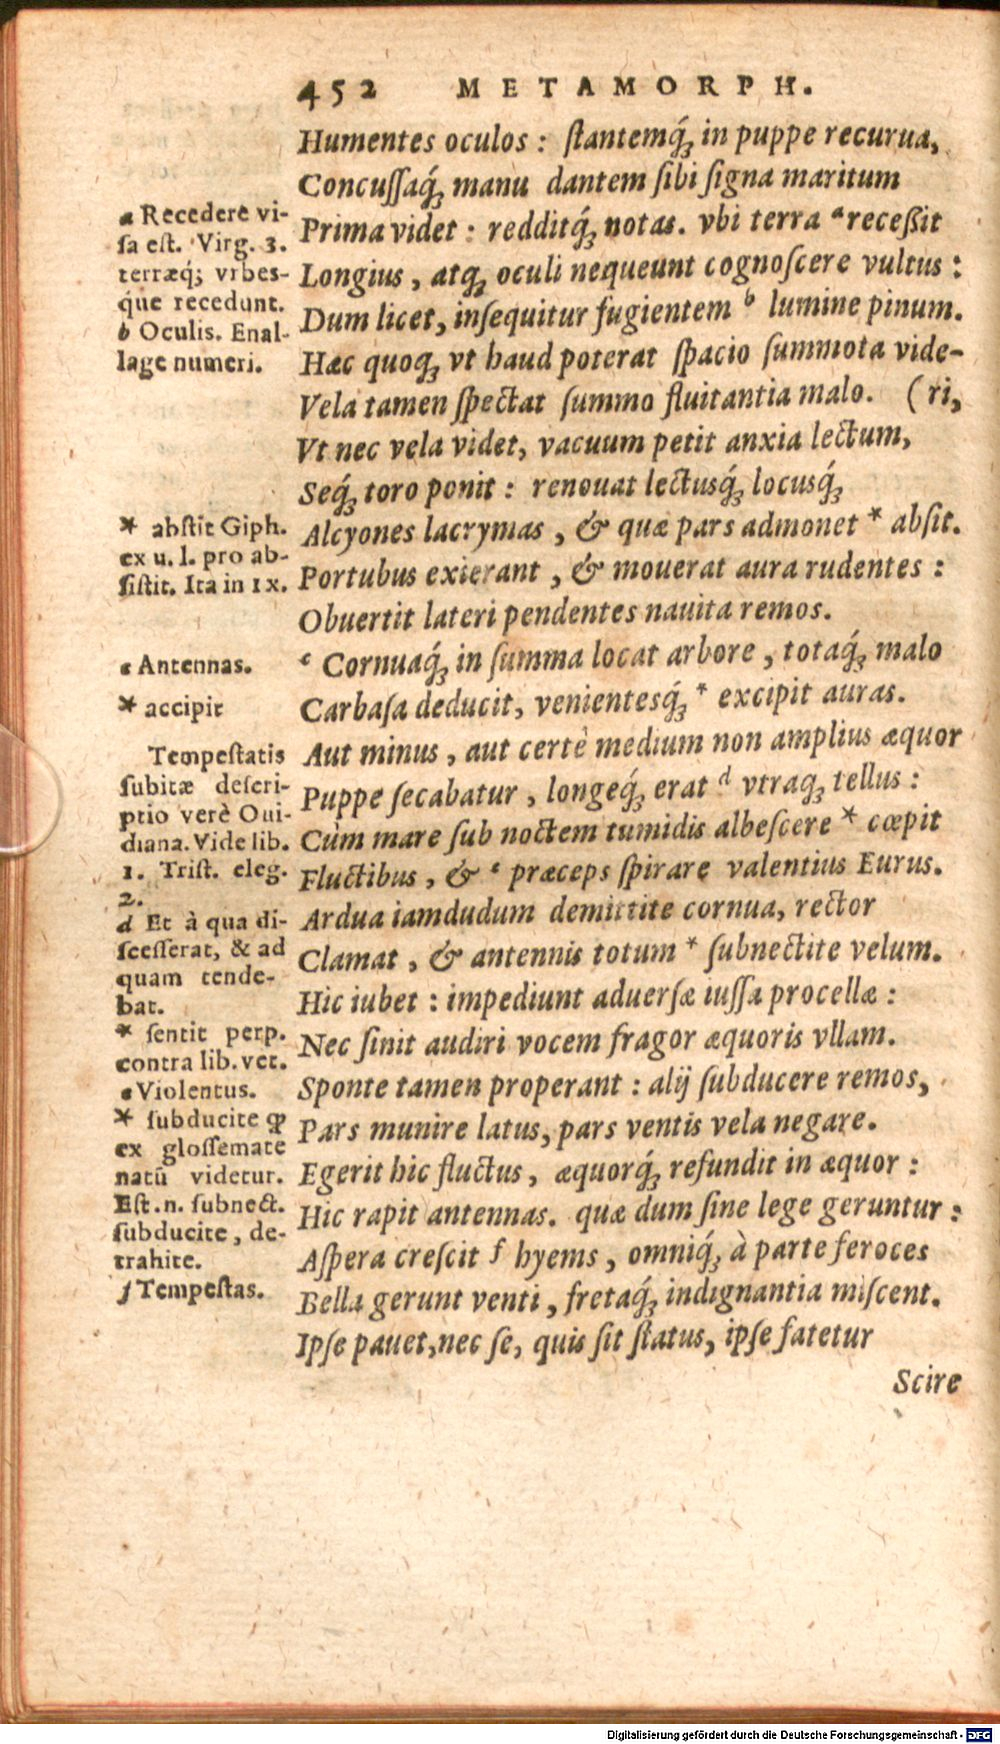 452 METAMORPH.
Humentes oculos : ſtantemq́ue in puppe recurua,
Concuſſaq́ue manu dantem ſibi ſigna maritum
Prima videt : redditq́ue notas. vbi terra ᵃ receßit
Longius, atque oculi nequeunt cognoſcere vultus :
Dum licet, inſequitur fugientem ᵇ lumine pinum.
Hæc quoque vt haud poterat ſpacio ſummota vide-
Vela tamen ſpectat ſummo fluitantia malo. (ri,
Vt nec vela videt, vacuum petit anxia lectum,
Seq́ue toro ponit : renouat lectusq́ue locusq́ue
Alcyones lacrymas, & quæ pars admonet * abſit.
Portubus exierant, & mouerat aura rudentes :
Obuertit lateri pendentes nauita remos.
ᶜ Cornuaq́ue in ſumma locat arbore, totaq́ue malo
Carbaſa deducit, venientesq́ue * excipit auras.
Aut minus, aut certè medium non amplius æquor
Puppe ſecabatur, longeq́ue erat ᵈ vtraque tellus :
Cùm mare ſub noctem tumidis albeſcere * cœpit
Fluctibus, & ᵉ præceps ſpirare valentius Eurus.
Ardua iamdudum demittite cornua, rector
Clamat, & antennis totum * ſubnectite velum.
Hic iubet : impediunt aduerſæ iuſſa procellæ :
Nec ſinit audiri vocem fragor æquoris vllam.
Sponte tamen properant : alij ſubducere remos,
Pars munire latus, pars ventis vela negare.
Egerit hic fluctus, æquorq́ue refundit in æquor :
Hic rapit antennas. quæ dum ſine lege geruntur :
Aſpera creſcit ᶠ hyems, omniq́ue à parte feroces
Bella gerunt venti, fretaq́ue indignantia miſcent.
Ipſe pauet, nec ſe, quis ſit ſtatus, ipſe fatetur
Scire
a Recedere vi-
ſa eſt. Virg. 3.
terræq́; vrbes-
q́ue recedunt.
b Oculis. Enal-
lage numeri.
* abſtit Giph.
ex u. l. pro ab-
ſiſtit. Ita in IX.
c Antennas.
* accipit
Tempeſtatis
ſubitæ deſcri-
ptio verè Oui-
diana. Vide lib.
1. Triſt. eleg.
2.
d Et à qua di-
ſceſſerat, & ad
quam tende-
bat.
* ſentit perp.
contra lib. vet.
e Violentus.
* ſubducite ꝙ
ex gloſſemate
natū videtur.
Eſt. n. ſubnect.
ſubducite, de-
trahite.
f Tempeſtas.
Digitalisierung gefördert durch die Deutsche Forschungsgemeinschaft - DFG